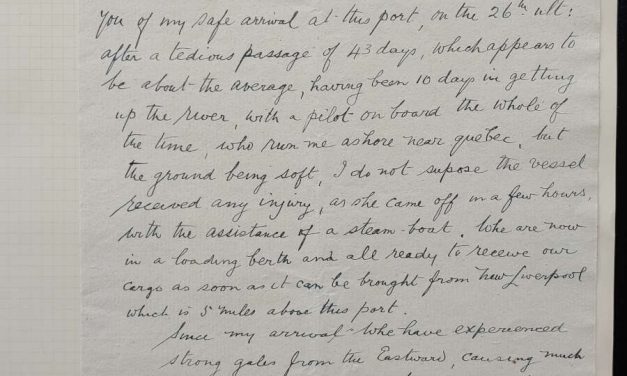 You of my safe arrival at this port, on the 26th ult:
after a tedious passage of 43 days, which appears to
be about the average, having been 10 days in getting
up the river, with a pilot on board the whole of
the time, who run me ashore near Quebec, but
the ground being soft, I do not supose the vessel
received any injury, as she came off in a few hours,
with the assistance of a steam-boat. Whe are now
in a loading berth and all ready to receive our
cargo as soon as it can be brought from New Liverpool
which is 5 miles above this port.
Since my arrival whe have experienced
strong gales from the Eastward, causing much